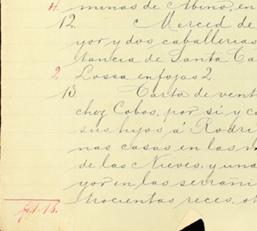 4 minas de Albino, en
12. Merced de
yor y dos caballerias
tancia de Santa Ca
2 Lossa en fojas 2
13 Carta de vent
chez Cobos, por sí y c
sus hijos á Rodri
nas casas en las m
de las Nieves, y una
yor en las serrani
trocientas reces, ot